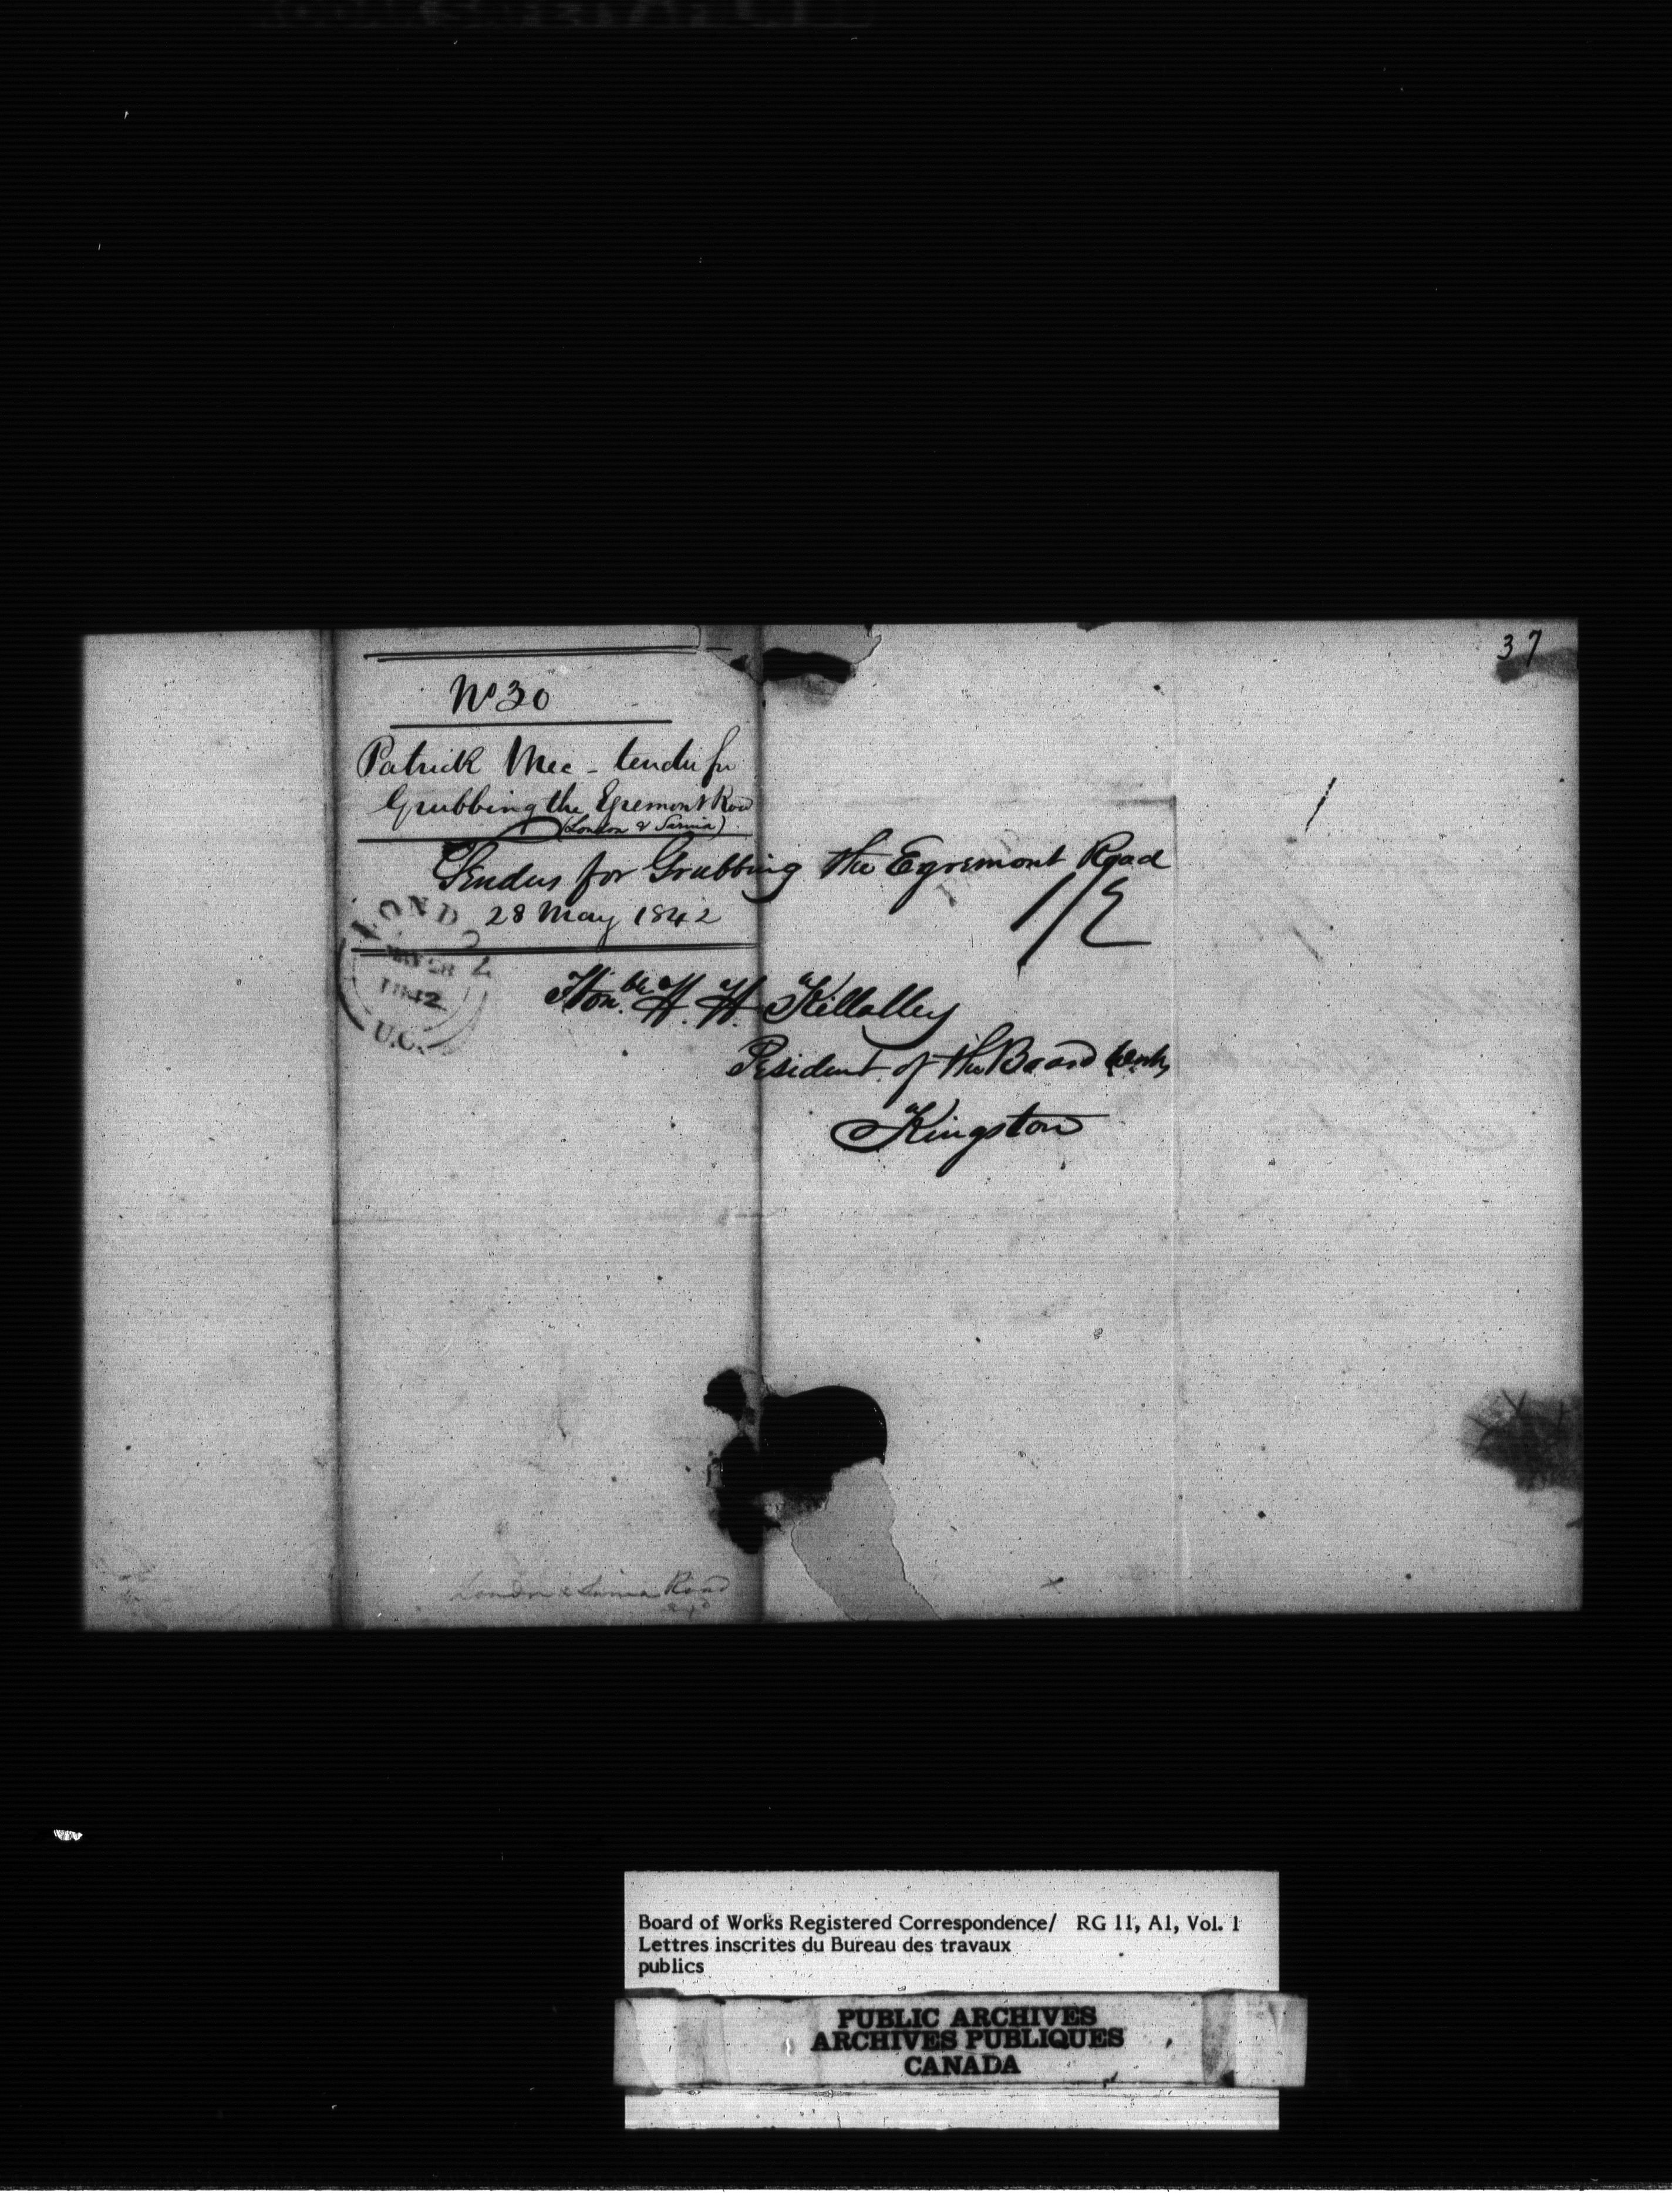 37
No 30
Patrick Mee - tender for
Grubbing the Egremont Road
(London & Sarnia)
Tendus for Grubbing the Egremont Road
1/2
28 May 1842
LOND
MAY 28
1842
U.C.
Honble H. H. Killalley
President of the Board Works
Kingston
London & Sarnia Road
Board of Works Registered Correspondence/ RG 11, A1, Vol. 1
Lettres inscrites du Bureau des travaux
publics
PUBLIC ARCHIVES
ARCHIVES PUBLIQUES
CANADA